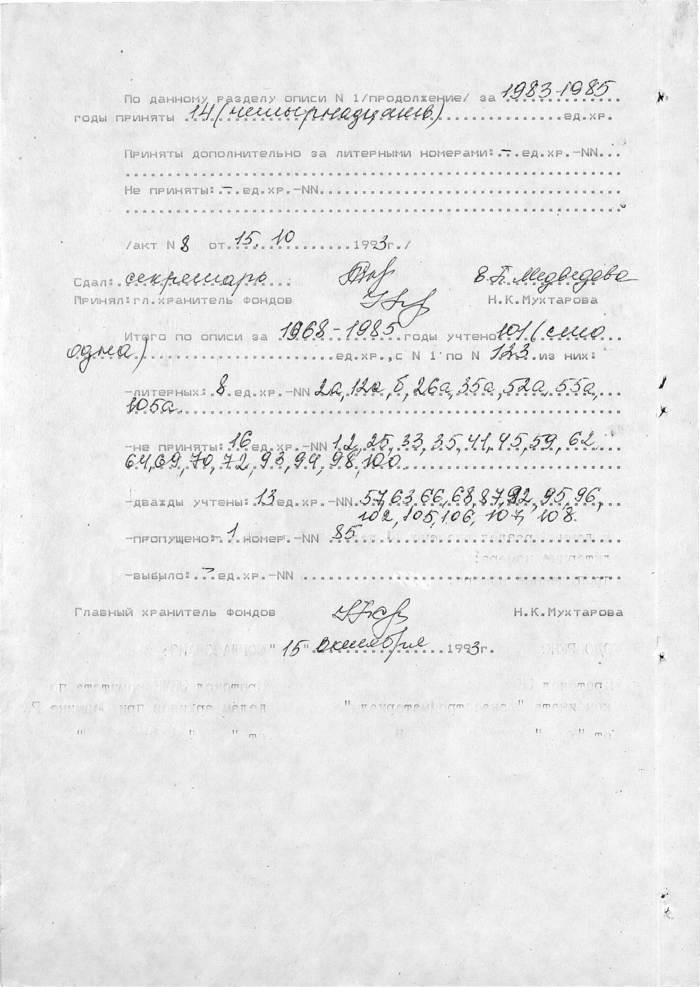 По данному разделу описи N 1/продолжение/ за 1983-1985
годы приняты 14 (четырнадцать) ед.хр.
Приняты дополнительно за литерными номерами: – ед.хр.-NN
Не приняты: – ед.хр.-NN
/акт N 8 от 15.10 1993г./
Сдал: секретарь Е.Б. Медведева
Принял: гл.хранитель фондов Н.К.Мухтарова
Итого по описи за 1968-1985 годы учтено 101 (сто
одна) ед.хр., с N 1 по N 123 из них:
-литерных: 8 ед.хр.-NN 2а, 12а, б, 26а, 35а, 52а, 55а,
105а
-не приняты: 16 ед.хр.-NN 12, 25, 33, 35, 41, 45, 59, 62
64, 69, 70, 72, 93, 94, 98, 100
-дважды учтены: 13 ед.хр.-NN 57, 63, 66, 68, 87, 92, 95, 96,
102, 105, 106, 107, 108.
-пропущено: 1 номер.-NN 85
-выбыло: – ед.хр.-NN
Главный хранитель фондов Н.К.Мухтарова
"15" октября 1993г.